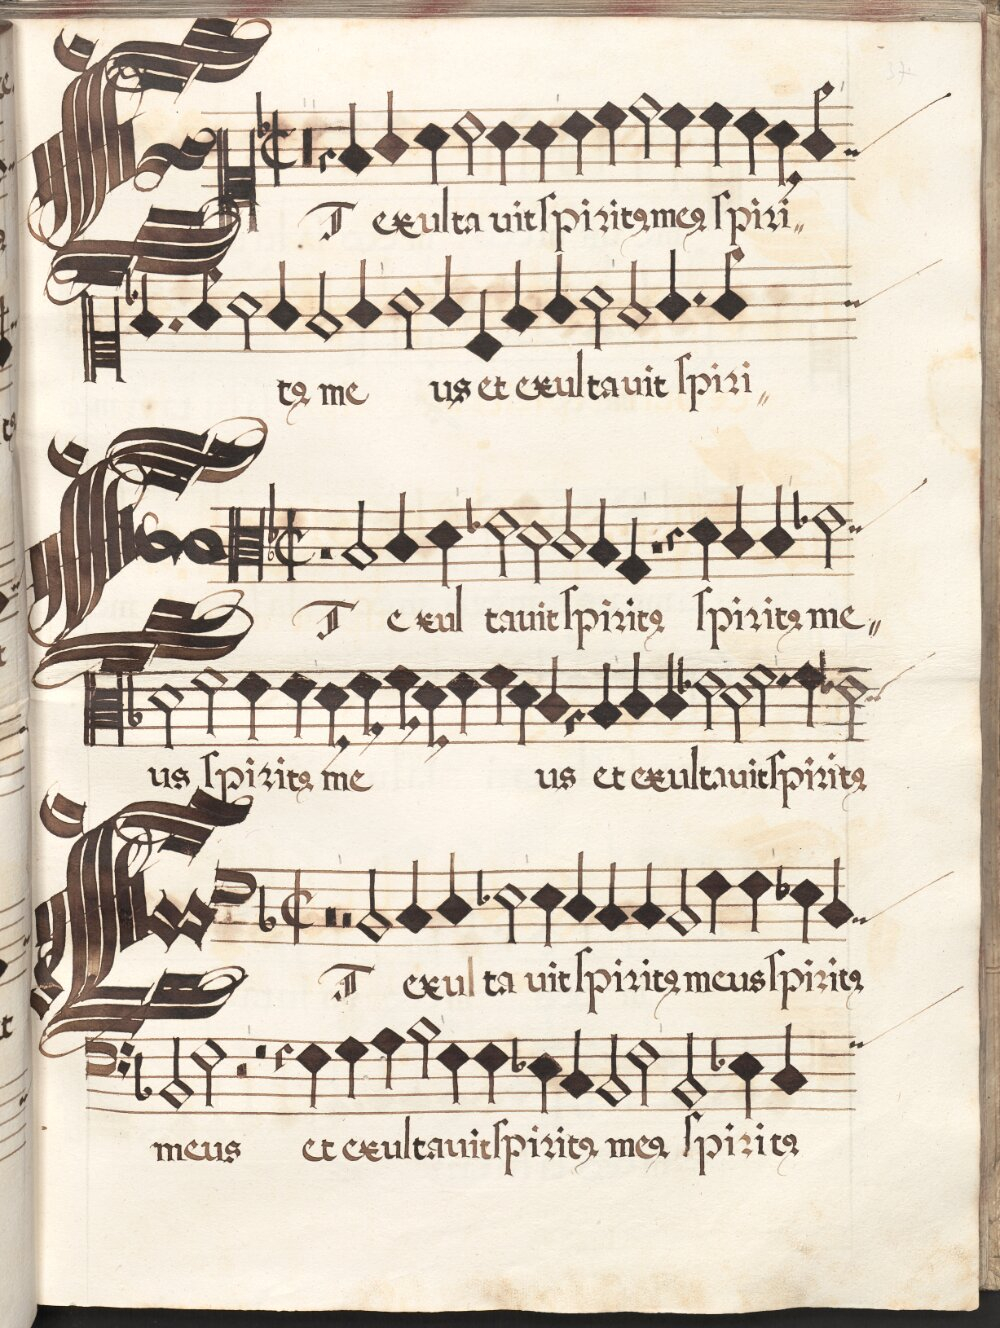 ET exulta uit spiritꝰ meꝰ spiri〃
tꝰ me us et exultauit spiri〃
ET exul tauit spiritꝰ spiritꝰ me〃
us spiritꝰ me us et exultauit spiritꝰ
ET exul ta uit spiritꝰ meus spiritꝰ
meus et exultauit spiritꝰ meꝰ spiritꝰ